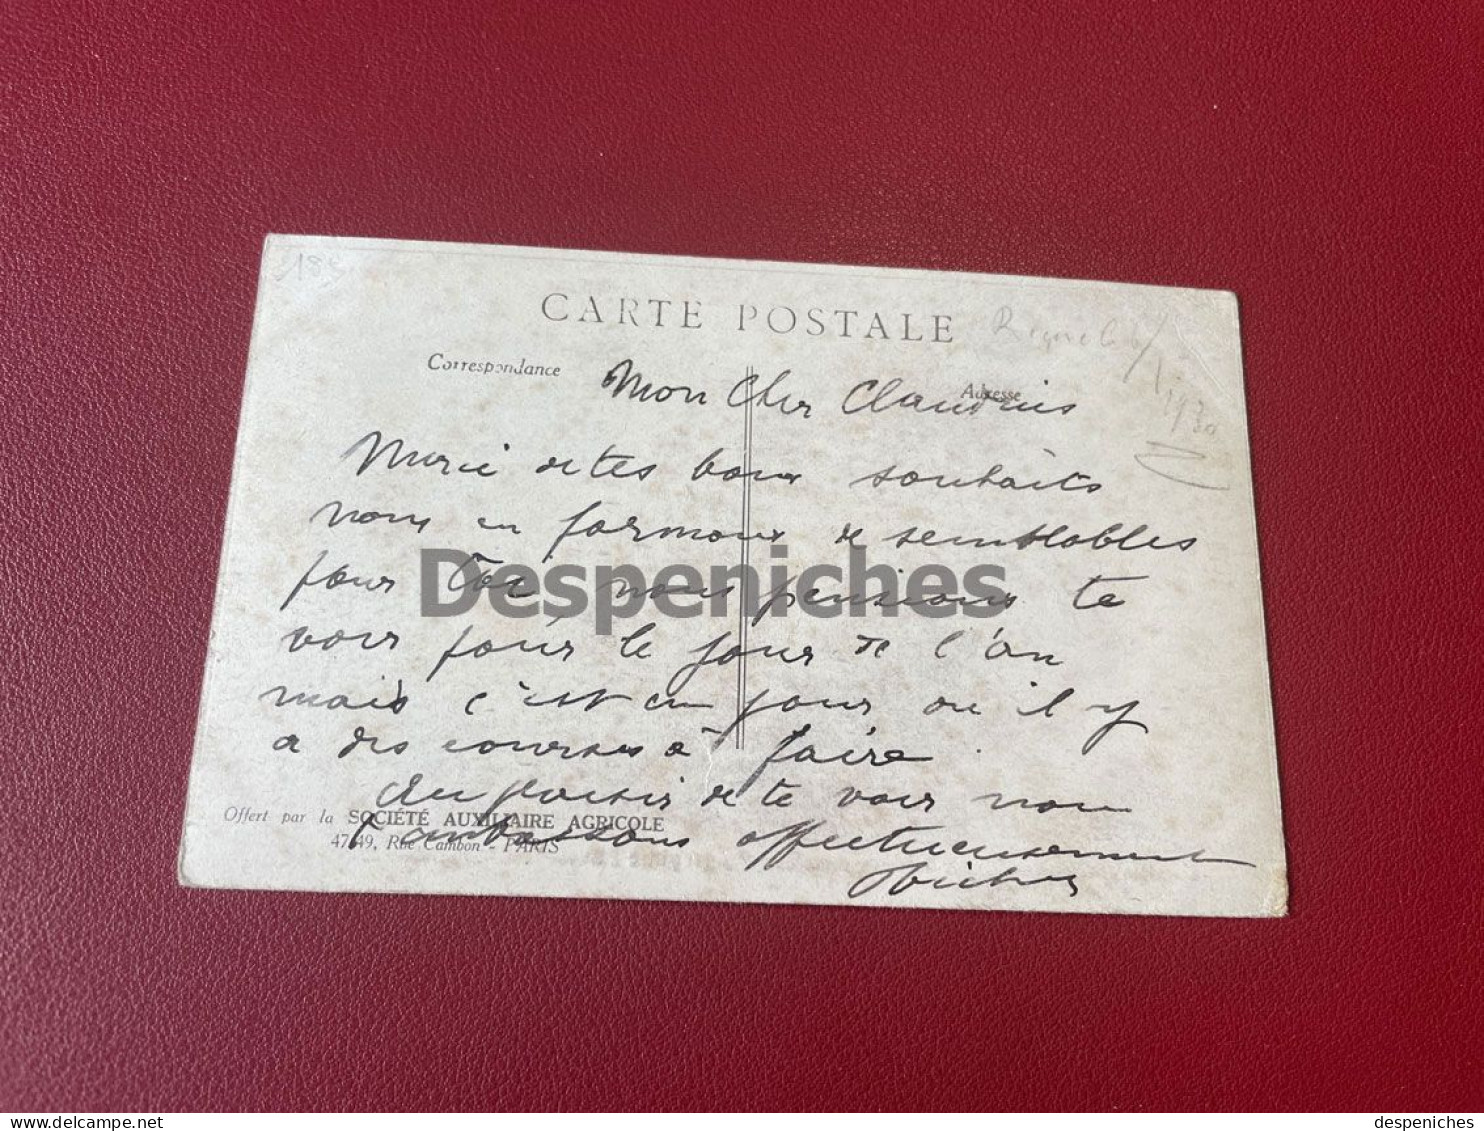 183
CARTE POSTALE
Correspondance
Adresse
Reçue le 6/1 1930
Mon Cher Claudius
Merci de tes bons souhaits
nous en formons de semblables
pour toi nous pensions te
voir pour le jour de l'an
mais c'est un jour où il y
a des courses à faire.
Au plaisir de te voir nous
t'embrassons affectueusement
Offert par la SOCIÉTÉ AUXILIAIRE AGRICOLE
47-49, Rue Cambon - PARIS
Despeniches
delcampe.net
despeniches